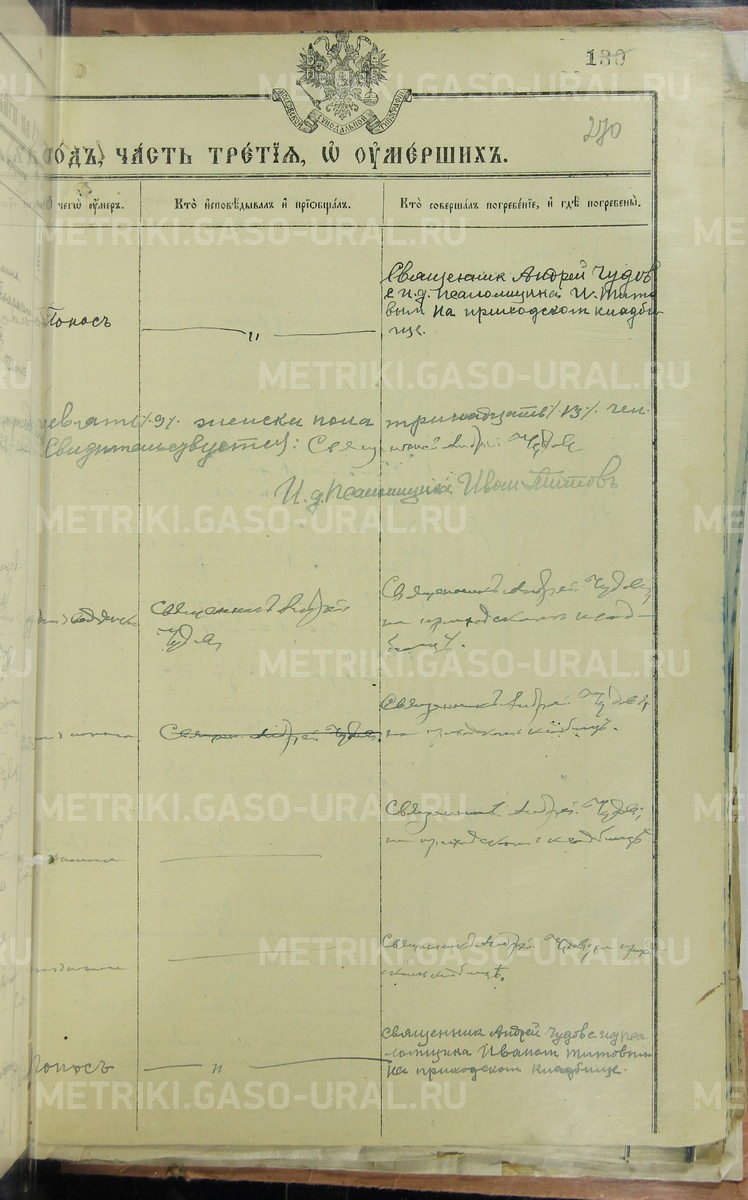 130
270
СѴНОДАЛЬНОЙ
ГОДЪ, ЧА́СТЬ ТРЕ́ТЇѦ, Ѡ҆ ОУ҆МЕ́РШИХЪ.
чегѡ̀ оу҆́меръ.
Кто̀ и҆сповѣ́дывалъ и҆ прїѡбща́лъ.
Кто̀ соверша́лъ погребе́нїе, и҆ гдѣ̀ погребены̀.
Священник Андрей Чудов
с и.д. псаломщика И. Тито
Поносъ
вым на приходском кладби-
"
ще.
девять /.9/. женска пола тринадцать /.13/. чел.
Свидительствуется: Священник Андрей Чудов
И.д. Псаломщика Иван Титовъ
Священникъ Андрей
Чудов
Священникъ Андрей Чудов,
на приходском клад-
бищѣ.
Священ. Андрей Чудов.
Священникъ Андрей Чудов,
на приходском кладбищѣ.
Священник Андрей Чудов,
на приходском кладбищѣ
Священник Андрей Чудов, на прихо
ском кладбищѣ.
Священник Андрей Чудов с ид пса
ломщика Иваном Титовым
Поносъ
"
на приходском кладбище.
METRIKI.GASO-URAL.RU